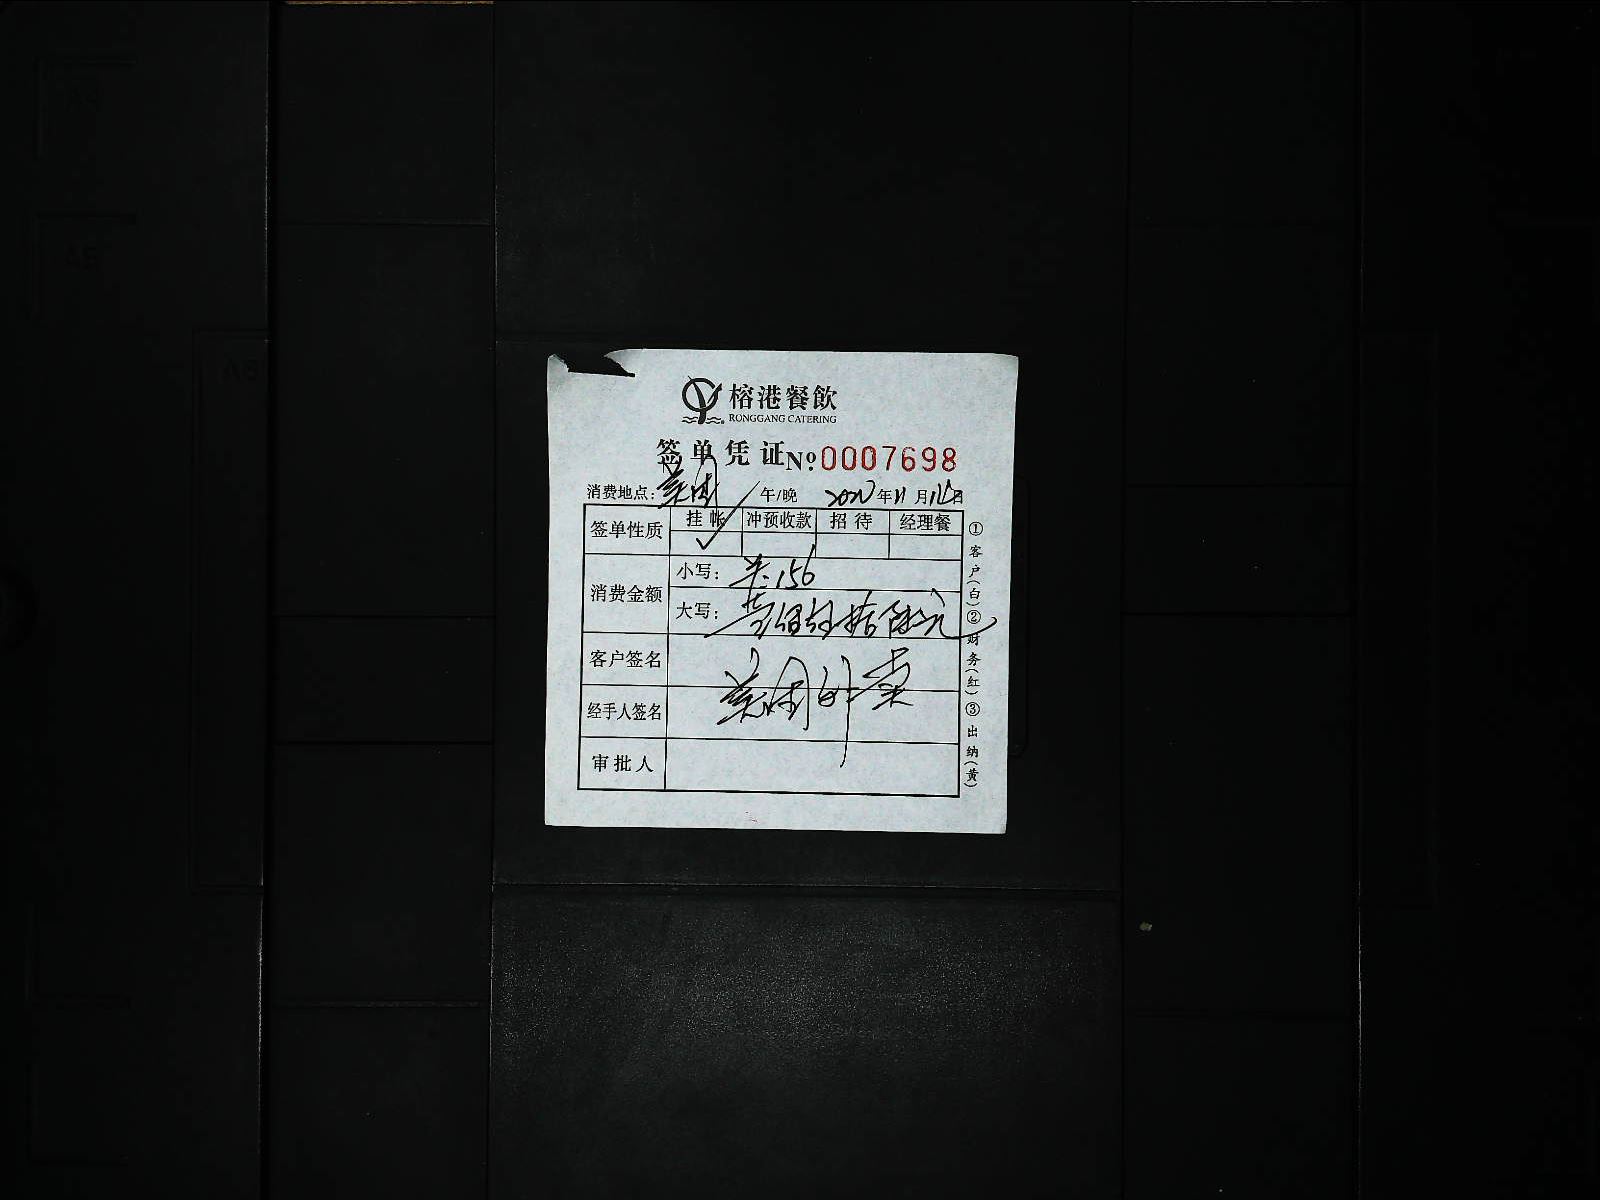 榕港餐飲
RONGGANG CATERING
签单凭证 Nº 0007698
消费地点：美团 午/晚 年 11 月 日
签单性质 挂帐 冲预收款 招待 经理餐
✓
消费金额 小写：156
大写：壹佰伍拾陆元
客户签名
美团外卖
经手人签名
审批人
①客户（白）②财务（红）③出纳（黄）